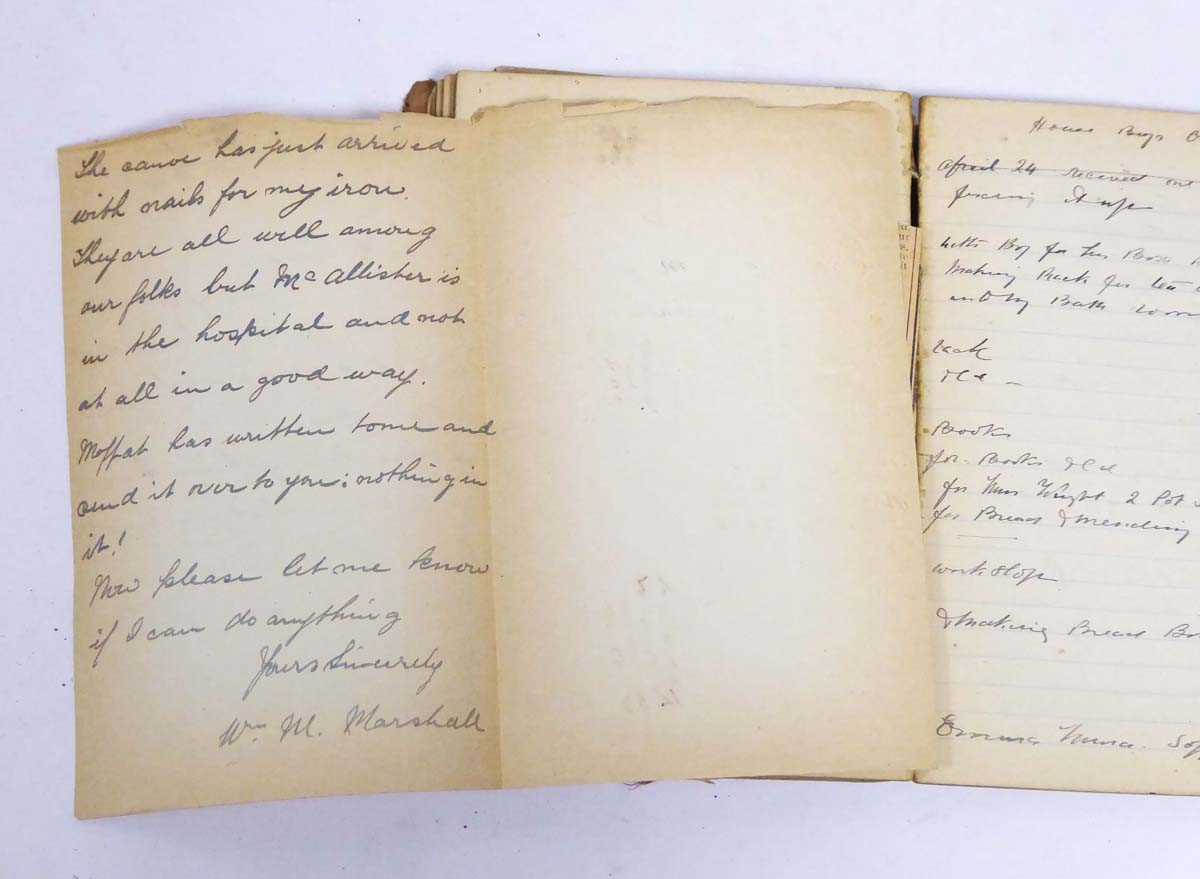 The canoe has just arrived
with nails for my iron.
They are all well among
our folks but McAllister is
in the hospital and not
at all in a good way.
Moffat has written to me and
and it over to you; nothing in
it!
Now please let me know
if I can do anything
Yours Sincerely
Wm M. Marshall
House Boys
April 24 received
up
Boy for
Making Rack for
Bath
Books
for Books
for 2 Pot
for Bread & Mending
workshop
& Making Bread
Emma